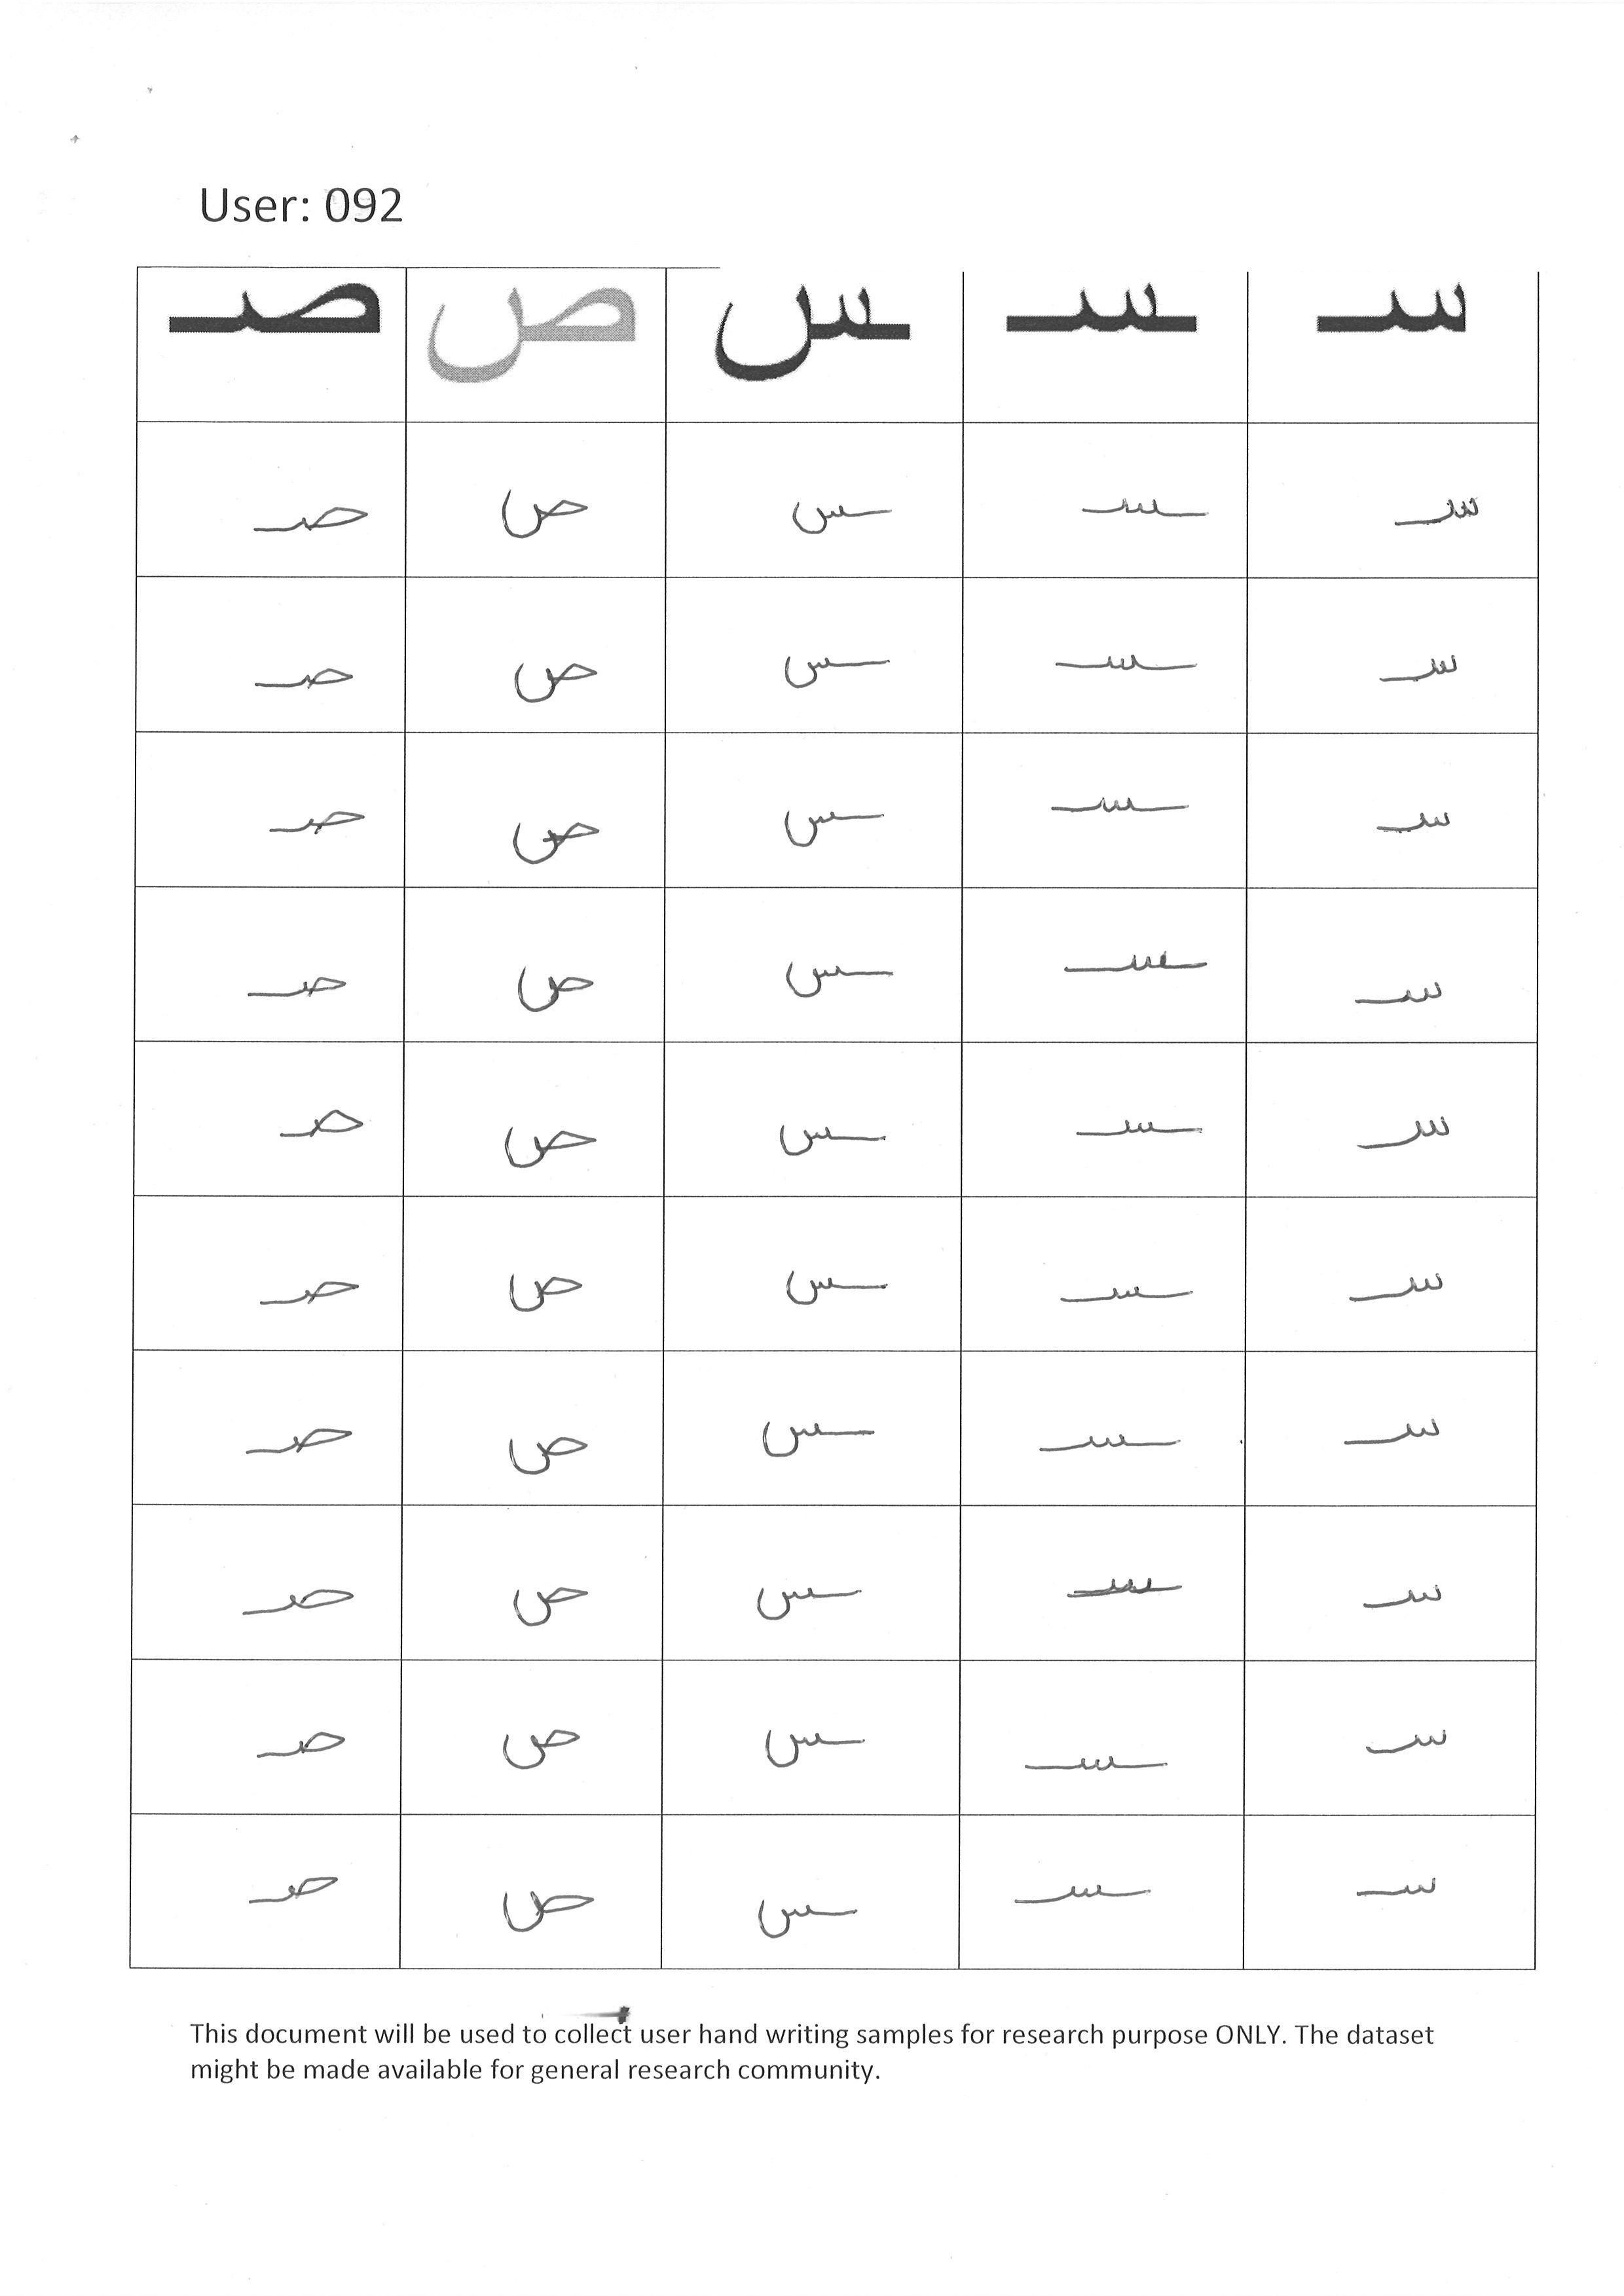 User: 092
سـ ـسـ ـس ص صـ
سـ ـسـ ـس ص صـ
سـ ـسـ ـس ص صـ
سـ ـسـ ـس ص صـ
سـ ـسـ ـس ص صـ
سـ ـسـ ـس ص صـ
سـ ـسـ ـس ص صـ
سـ ـسـ ـس ص صـ
سـ ـسـ ـس ص صـ
سـ ـسـ ـس ص صـ
سـ ـسـ ـس ص صـ
This document will be used to collect user hand writing samples for research purpose ONLY. The dataset
might be made available for general research community.